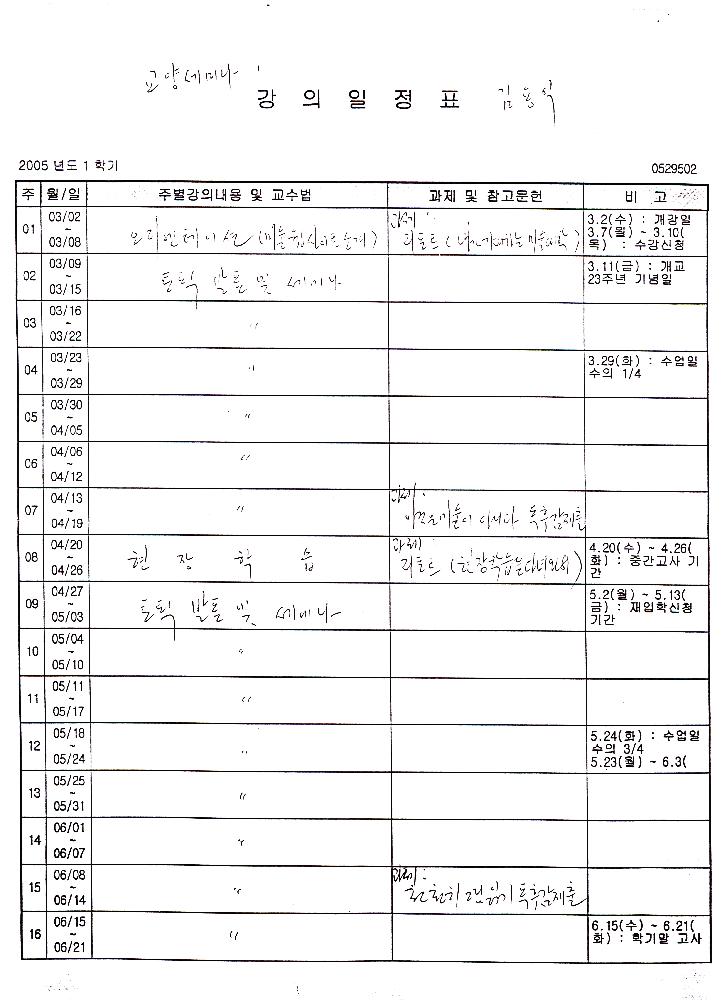 교양세미나
강 의 일 정 표 김용석
2005 년도 1 학기 0529502
주 월/일 주별강의내용 및 교수법 과제 및 참고문헌 비 고
01 03/02 ~ 03/08 오리엔테이션 과제: 리포트 3.2(수) : 개강일
3.7(월) ~ 3.10(
목) : 수강신청
02 03/09 ~ 03/15 토픽 발표 및 세미나 3.11(금) : 개교
23주년 기념일
03 03/16 ~ 03/22 〃
04 03/23 ~ 03/29 〃 3.29(화) : 수업일
수의 1/4
05 03/30 ~ 04/05 〃
06 04/06 ~ 04/12 〃
07 04/13 ~ 04/19 〃 과제: 독후감제출
08 04/20 ~ 04/26 현 장 학 습 과제: 리포트 (현장학습을 다녀와서) 4.20(수) ~ 4.26(
화) : 중간고사 기
간
09 04/27 ~ 05/03 토픽 발표 및 세미나 5.2(월) ~ 5.13(
금) : 재입학신청
기간
10 05/04 ~ 05/10 〃
11 05/11 ~ 05/17 〃
12 05/18 ~ 05/24 〃 5.24(화) : 수업일
수의 3/4
5.23(월) ~ 6.3(
13 05/25 ~ 05/31 〃
14 06/01 ~ 06/07 〃
15 06/08 ~ 06/14 〃 과제: 독후감제출
16 06/15 ~ 06/21 〃 6.15(수) ~ 6.21(
화) : 학기말 고사